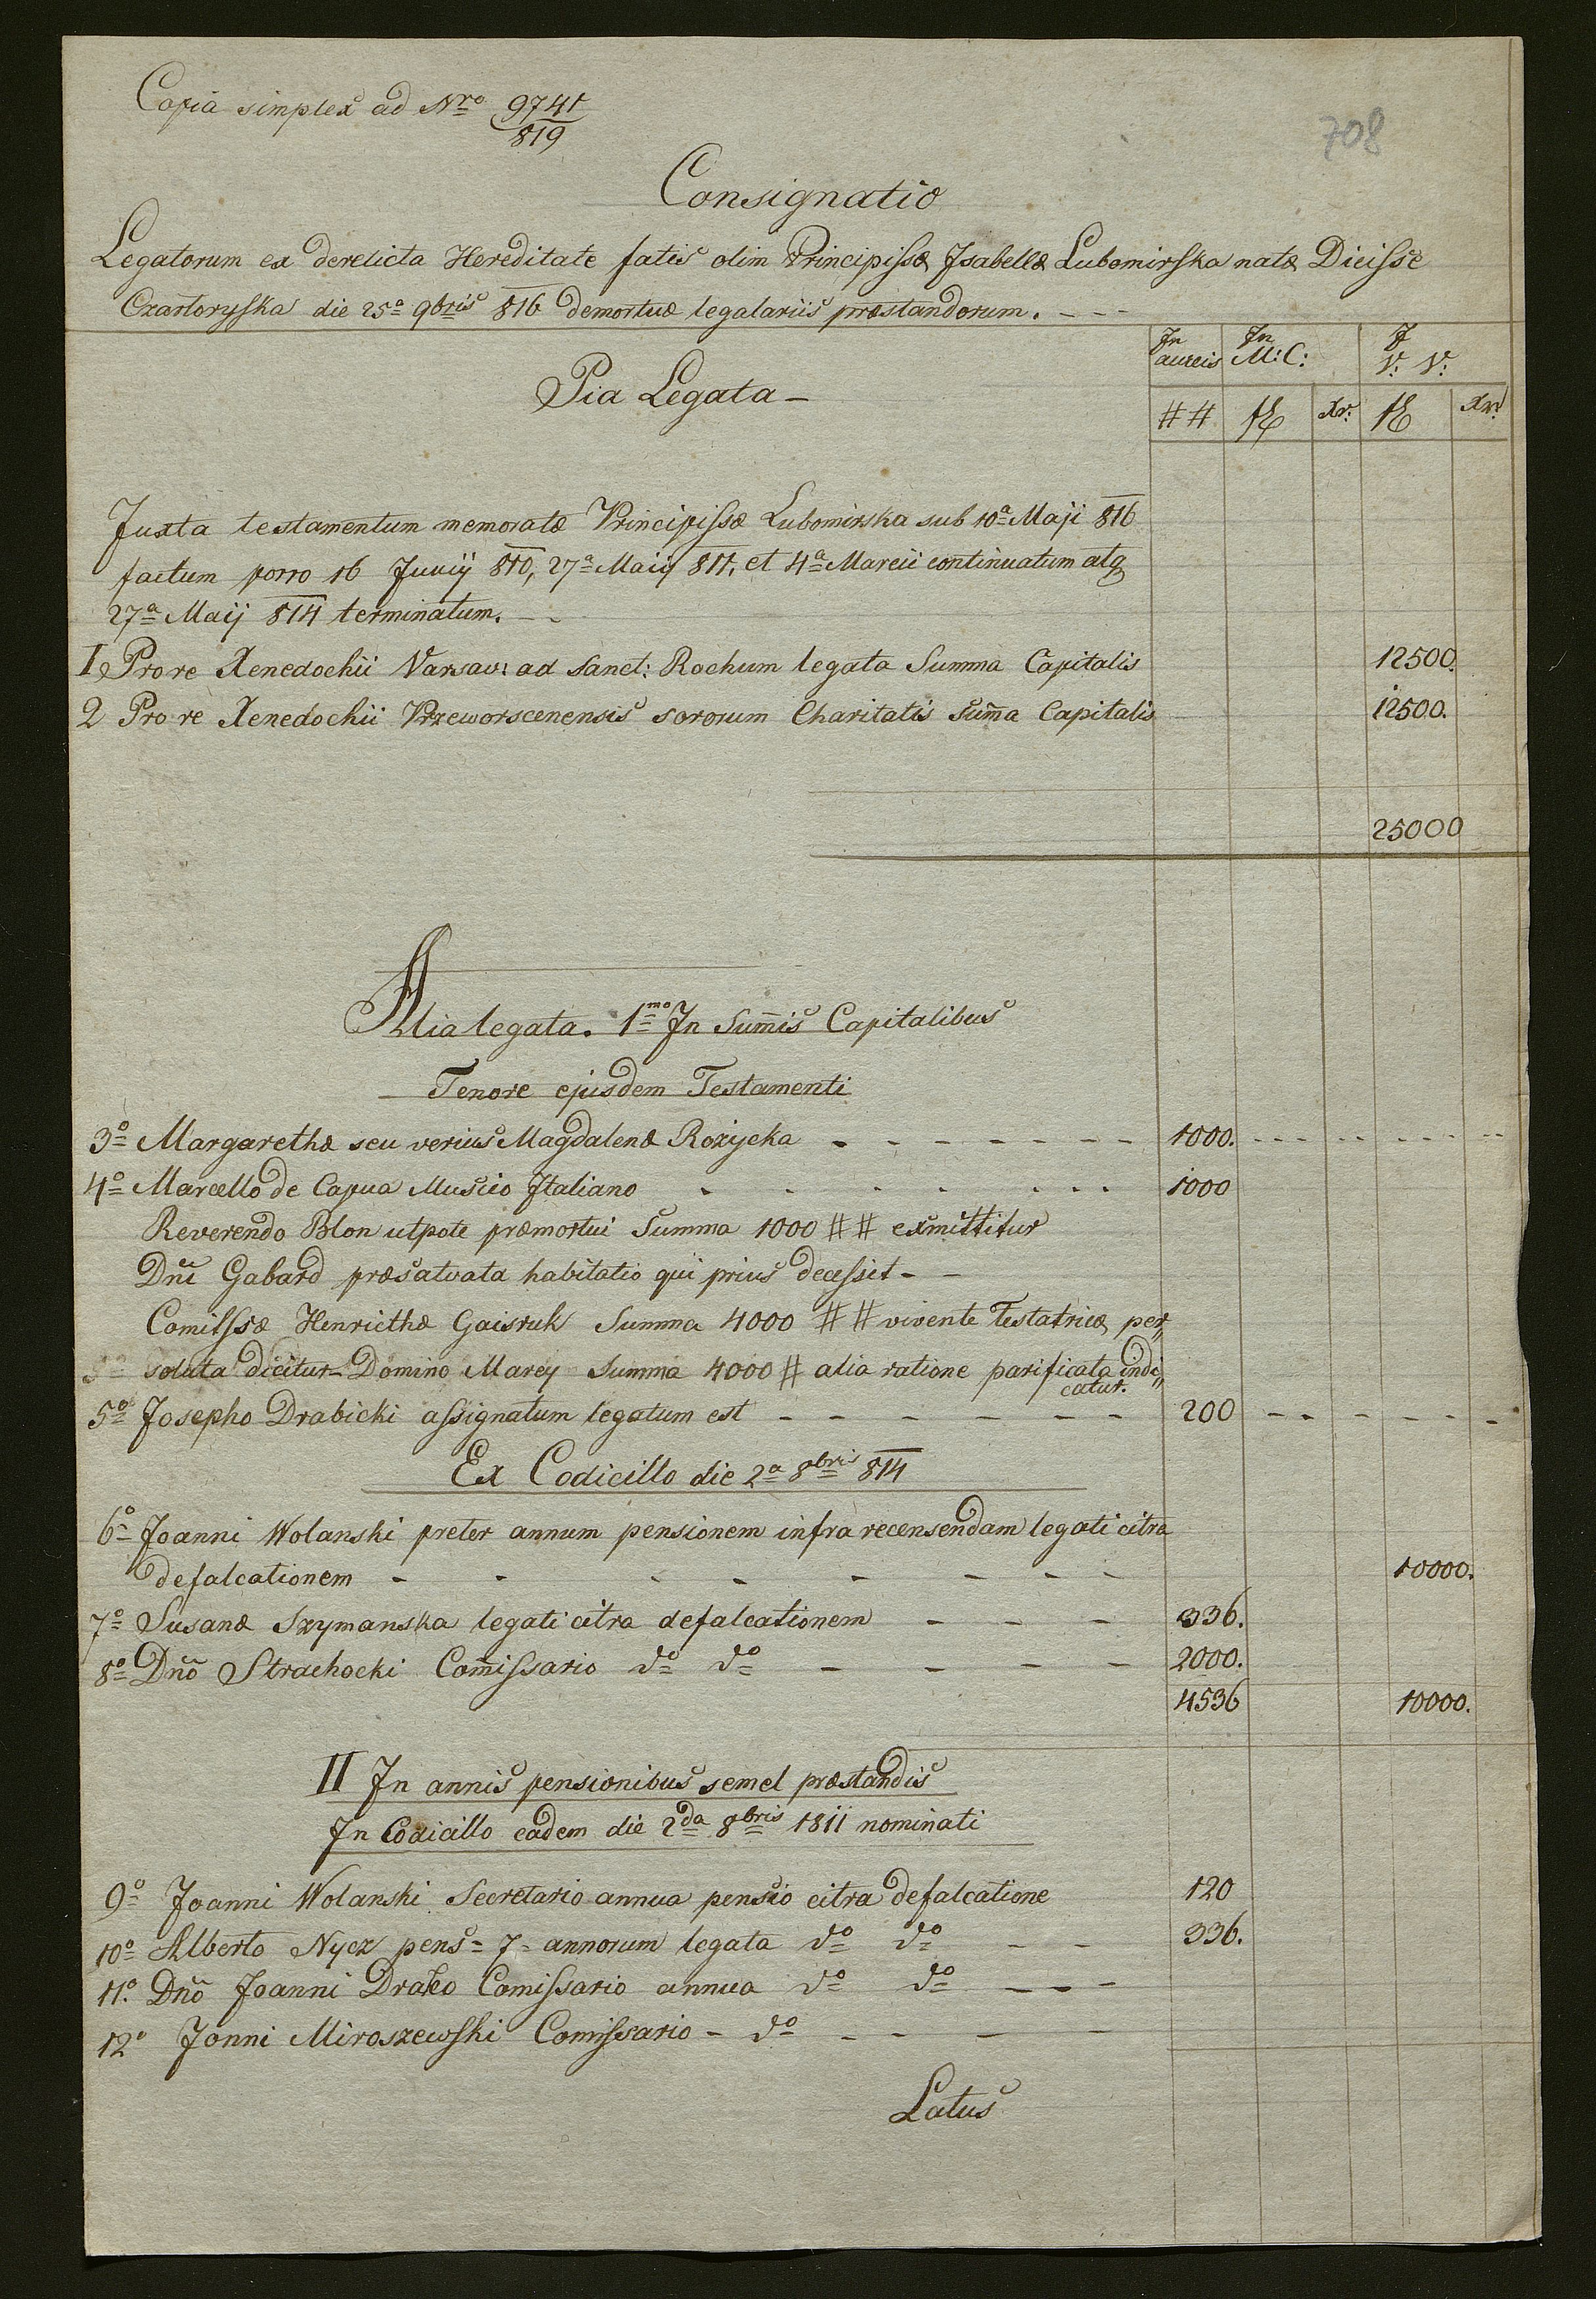 Copia simplex ad Nro 9741/819
708
Consignatio
Legatorum ex derelicta Hereditate fatis olim Principissæ Isabellæ Lubomirska natæ Dicisse
Czartoryska die 25a 9bris 816 demortuæ legatariis præstandorum. - - -
In aureis In M: C: J V: V:
Pia Legata -
## f Xr: f Xr:
Juxta testamentum memoratæ Principissæ Lubomirska sub 10a Maji 816
factum porro 16 Juuij 810, 27a Maij 811, et 4a Marcii continuatum atq
27a Maij 814 terminatum. - -
I Pro re Xenedochii Varsav: ad Sanct: Rochum legata Summa Capitalis 12500.
2 Pro re Xenedochii Przeworscenensis sororum Charitatis Sum̄a Capitalis 12500.
25000
Alia legata. 1mo In Sum̄is Capitalibus
Tenore ejusdem Testamenti
3o Margarethæ seu verius Magdalenæ Rozycka - - - - - - - - 1000. - - -
4o Marcello de Capua Musico Italiano - - - - - - - 1000
Reverendo Blon utpote præmortui Summa 1000 ## exmittitur
Dn̄i Gabard præsatvata habitatio qui prius decessit - -
Comitssæ Henriethæ Gaisruk Summa 4000 ## vivente Testatrice per„
soluta dicitur - Domino Marey Summa 4000 # alia ratione parificata indi„
catur.
5o Josepho Drabicki assignatum legatum est - - - - - - - 200 - - - - - -
Ex Codicillo die 2a 8bris 814
6o Joanni Wolanski preter annum pensionem infra recensendam legati citra
defalcationem - - - - - - - - 10000.
7o Susanæ Szymanska legati citra defalcationem - - - 336.
8o Dn̄o Strachocki Com̄issario do do - - - - 2000.
4536 10000.
II In annis pensionibus semel præstandis
In Codicillo eadem die 2da 8bris 1811 nominati
9o Joanni Wolanski Secretario annua pensio citra defalcatione 120
10o Alberto Nycz pens = 7 = annorum legata do do - - 336.
11o Dn̄o Joanni Drako Comissario annua do do - - -
12o Jonni Miroszewski Comissario - do - - - -
Latus